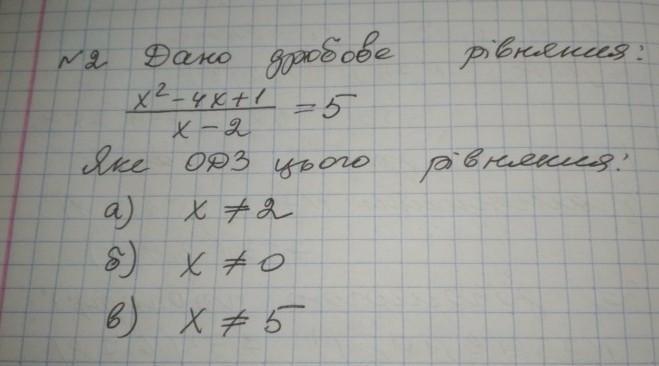 №2 Дано дробове рівняння:
x² - 4x + 1 / x - 2 = 5
Яке ОДЗ цього рівняння:
а) x ≠ 2
б) x ≠ 0
в) x ≠ 5